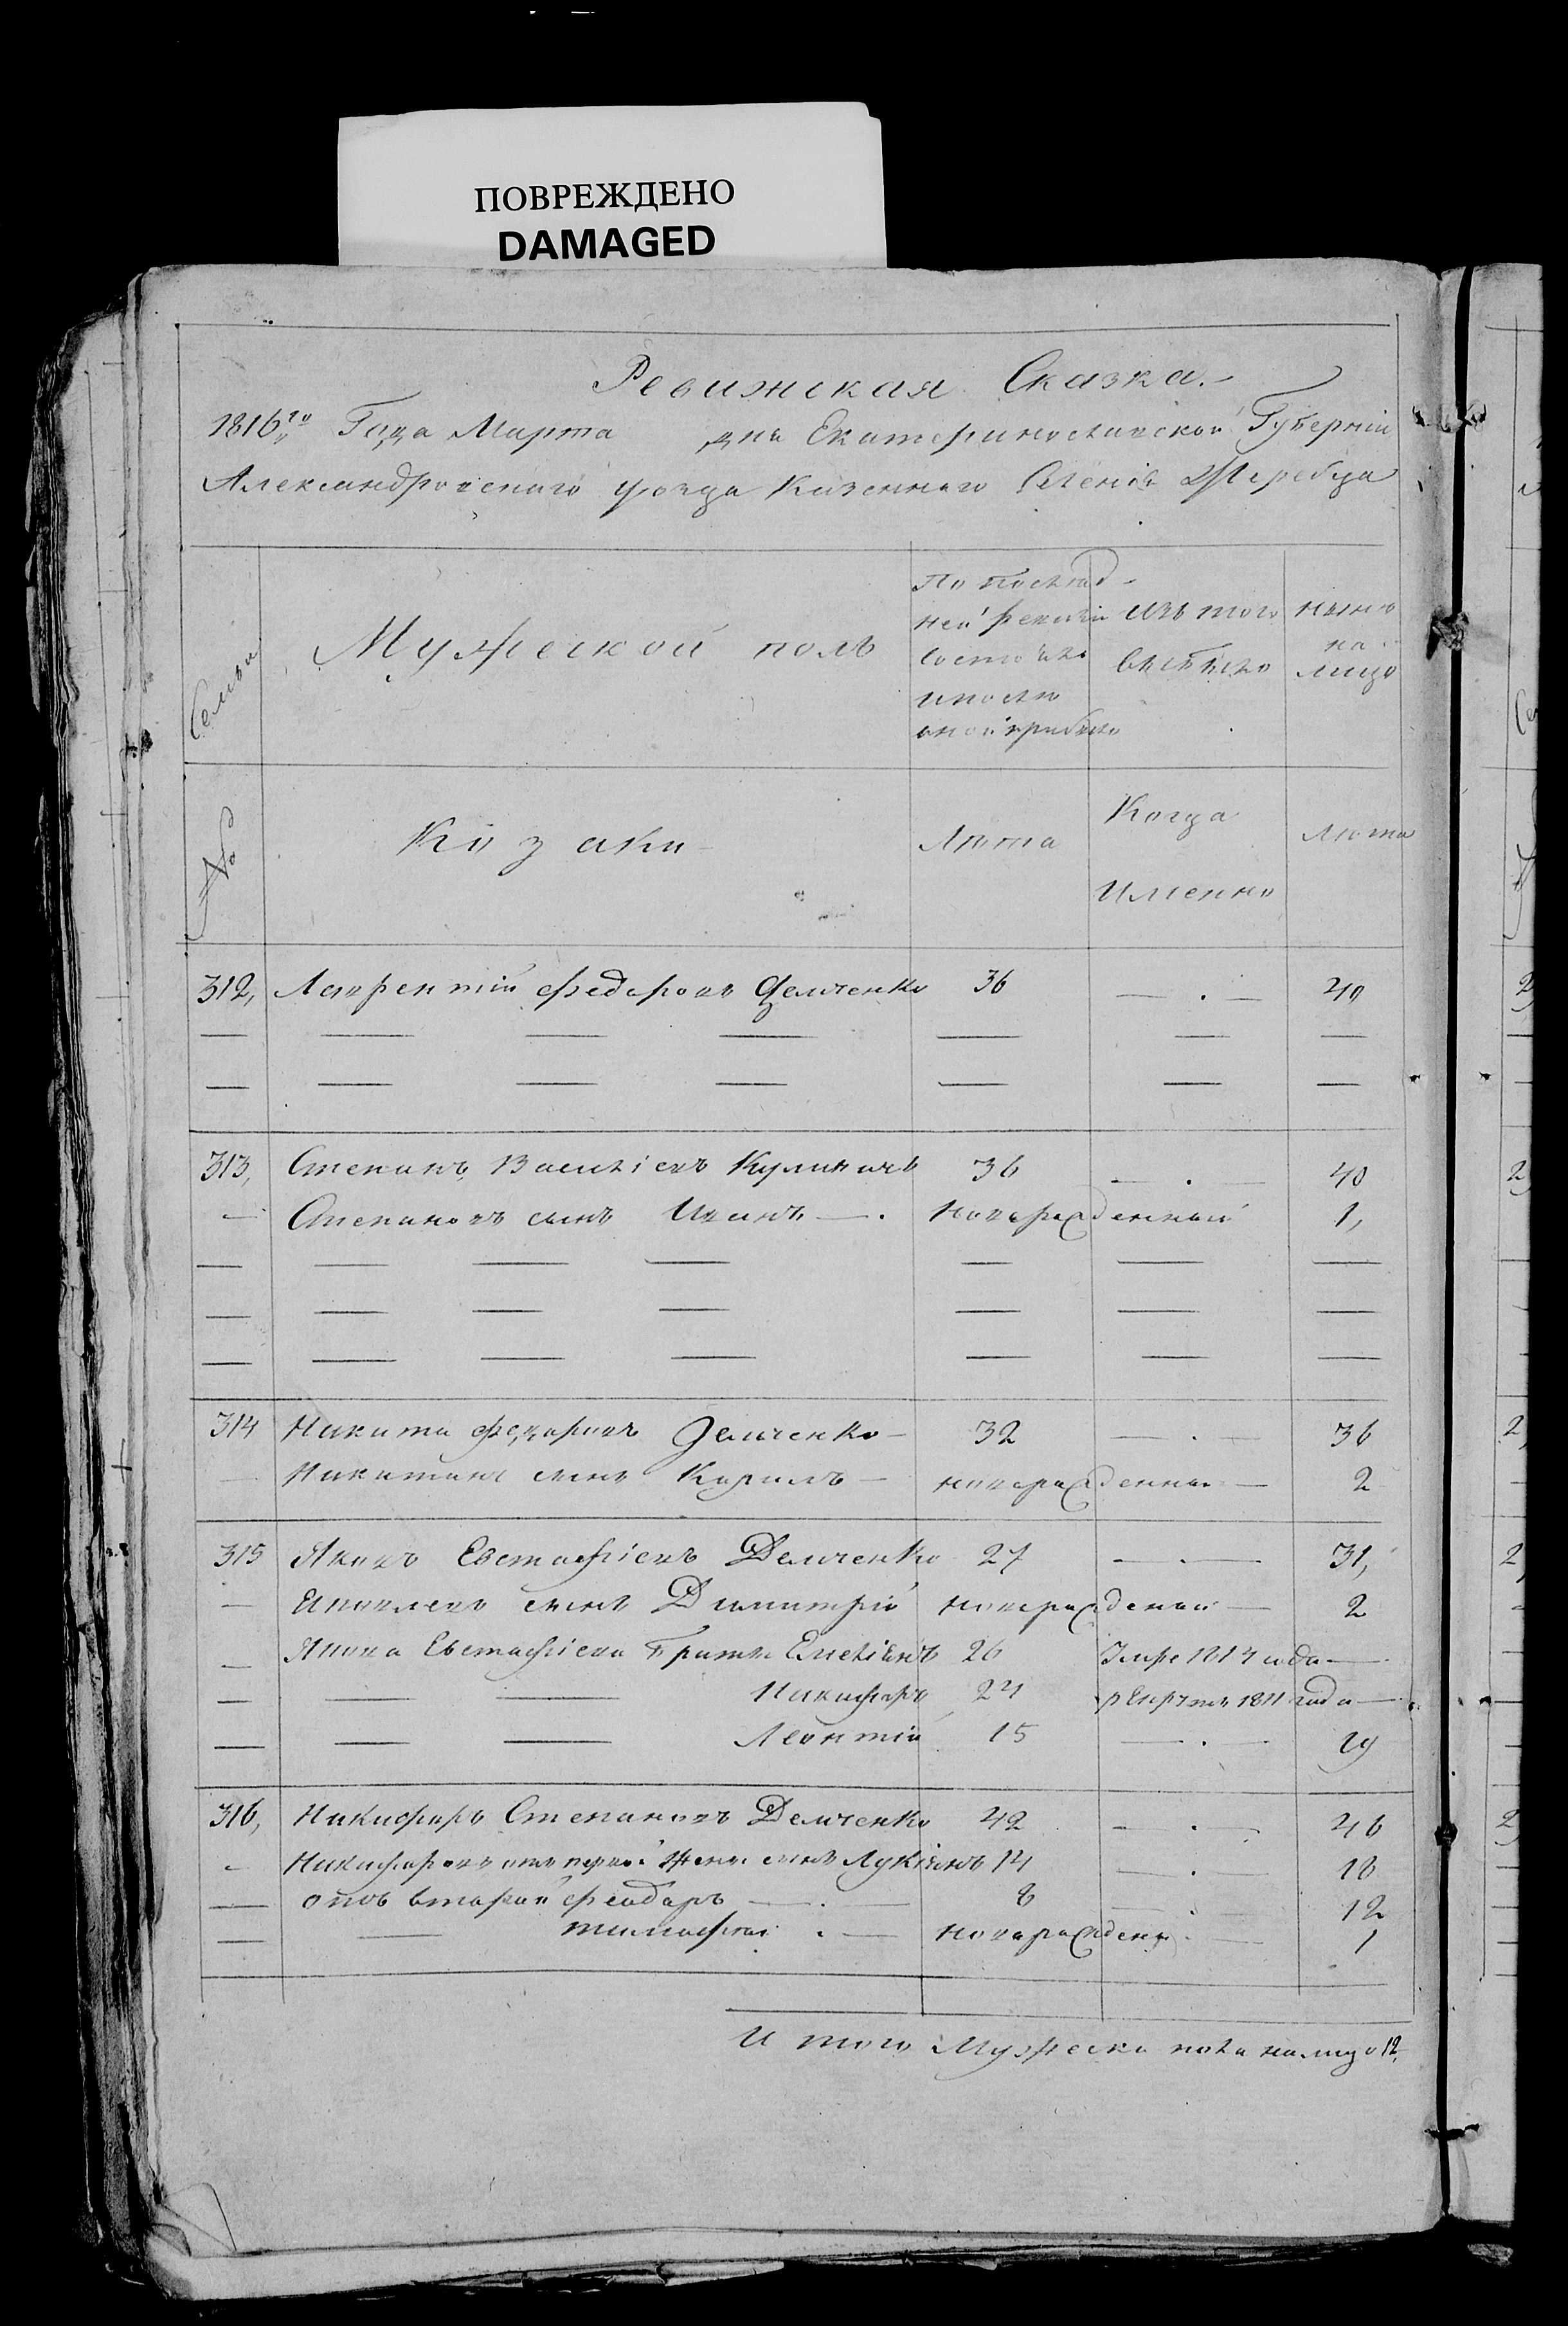 ПОВРЕЖДЕНО
DAMAGED
Ревижская Сказка.
1816го Года Марта дня Екатеринославской Губернiи
Александровскаго уезда Казеннаго Селенiя Жеребца
Семьи
Мужеской полъ
По послед-
ней ревизiи
состояло
и после
оной прибыло
Изъ того
выбыло
ныне
на
лицо
№
Козаки
Лета
Когда
Именно
Лета
312, Лаврентiй федоровъ Демченко 36 — . — 40
313, Степанъ Василiевъ Кулиничъ 36 — . — 40
— Степановъ сынъ Иванъ — . новорожденный 1,
314 Никита федоровъ Демченко — 32 — . — 36
— Никитинъ сынъ Кирилъ — новорожденны — 2
315 Яковъ Евстафiевъ Демченко 27 — . — 31,
— Яковлевъ сынъ Димитрiй новорожденый — 2
— Якова Евстафiева братья Емелiянъ 26 Умре 1814 года —
— — — Никифоръ 24 рекрутъ 1811 года —
— — — Леонтiй 15 — . — 19
316, Никифоръ Степановъ Демченко 42 — . — 46
— Никифоровъ отъ первой жены сынъ Лукiянъ 14 — . — 18
— отъ второй феодоръ — . — 8 — . — 12
— — тимофей . — новорожденъ . — 1
И того Мужеска пола налицо 12,